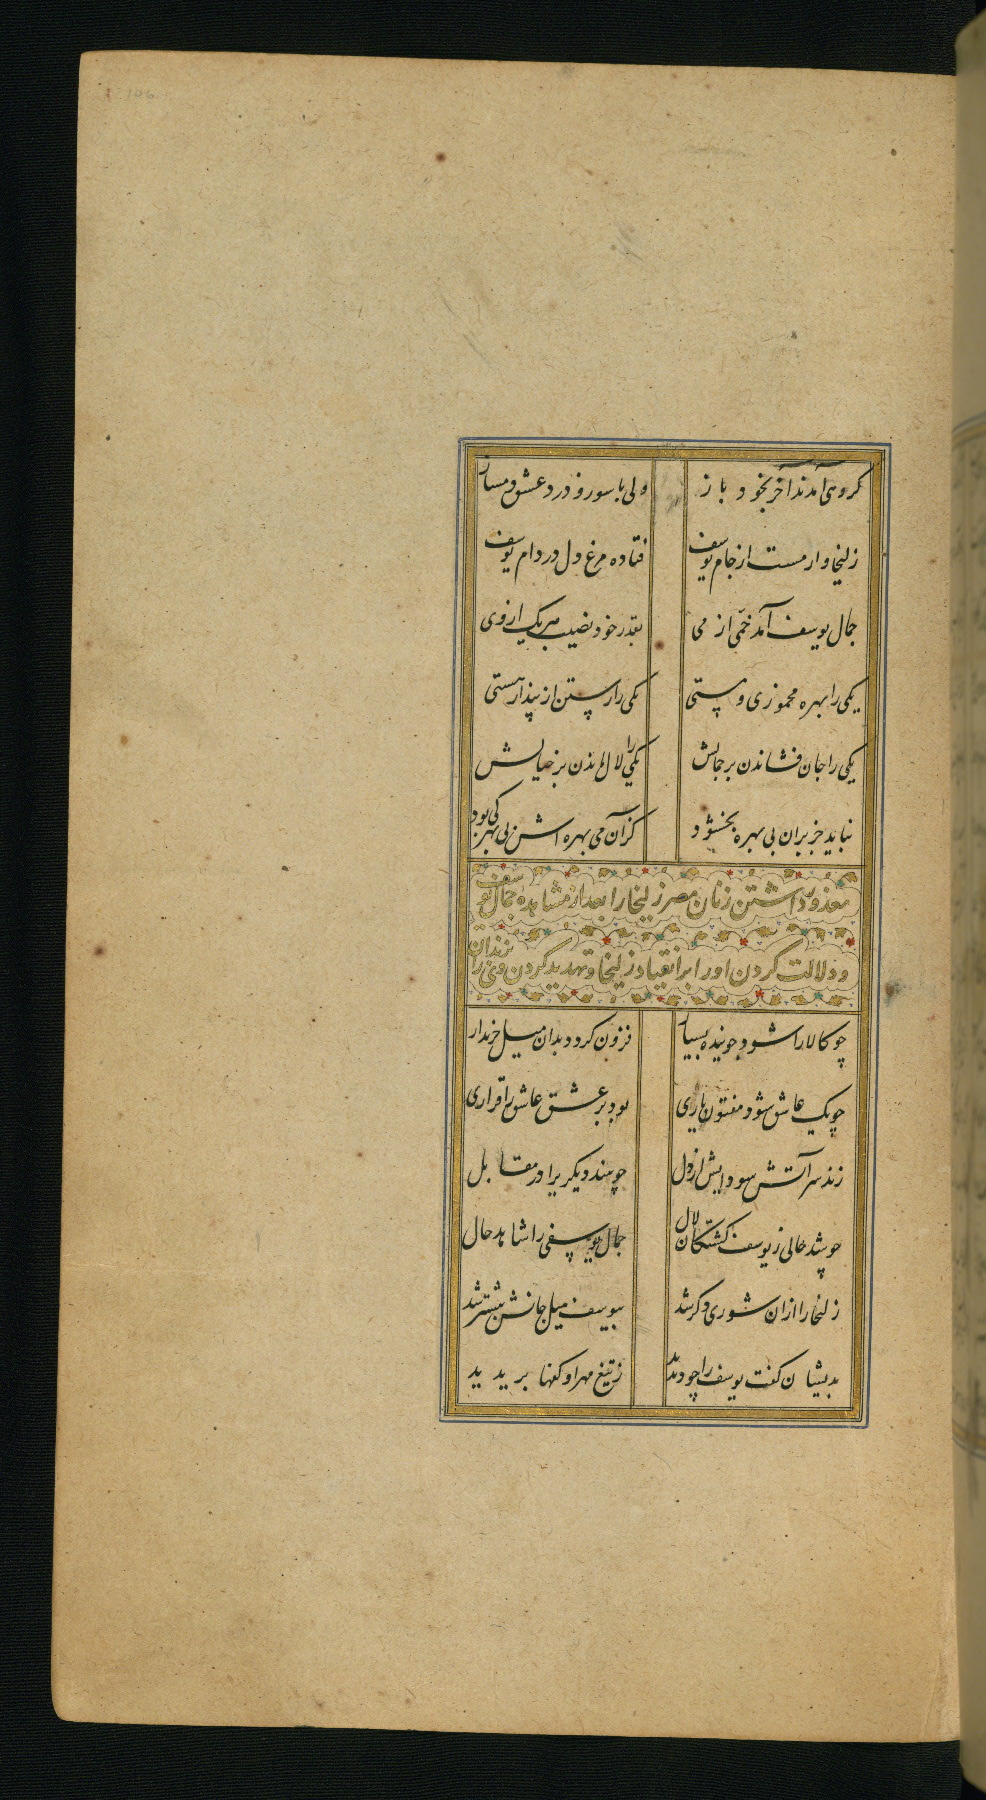 گروهی آمدند آخر بخود باز ولی با سوز و درد عشق دمساز
زلیخاوار مست از جام یوسف فتاده مرغ دل در دام یوسف
جمال یوسف آمد خمی از می بقدر خود نصیب هر یک از وی
یکی را بهره مخموری و مستی یکی را رستن از پندار هستی
یکی را جان فشاندن بر جمالش یکی را لال ماندن بر خیالش
نباید جز بران بی بهره بخشود کزان می بهره اش بی بهرکی بود
معذور داشتن زنان مصر زلیخا را بعد از مشاهده جمال یوسف
و دلالت کردن او را بر انقیاد زلیخا و تهدید کردن وی را بزندان
چو کالا را شود جوینده بسیار فزون کردد بدان میل خریدار
چو یک عاشق شود مفتون یاری بود بر عشق عاشق را قراری
زند سر آتش سودایش از دل چو بیند دیگریرا در مقابل
چو شد حالی ز یوسف کشتکان لال جمال یوسفی را شاهد حال
زلیخا را ازان شوری دکر شد بیوسف میل جانش بیشتر شد
بدیشان کفت یوسف را چو دیدید ز تیغ مهر او کفها بریدید